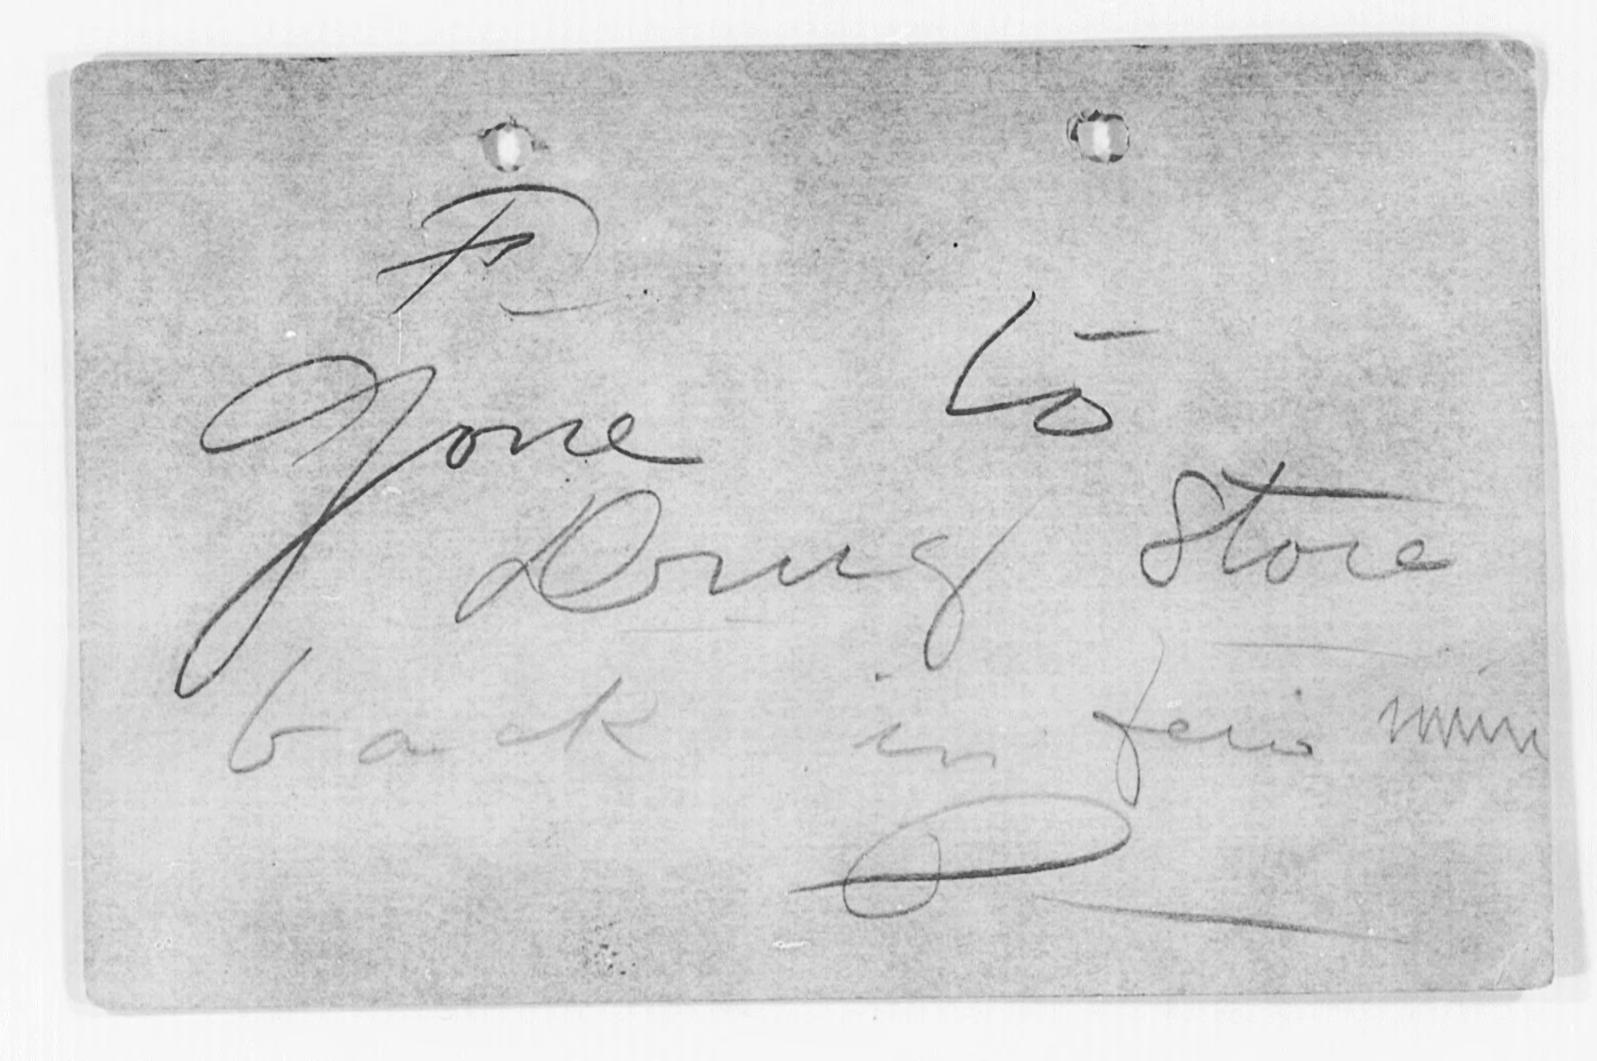 Gone to
Drug Store
back in few min